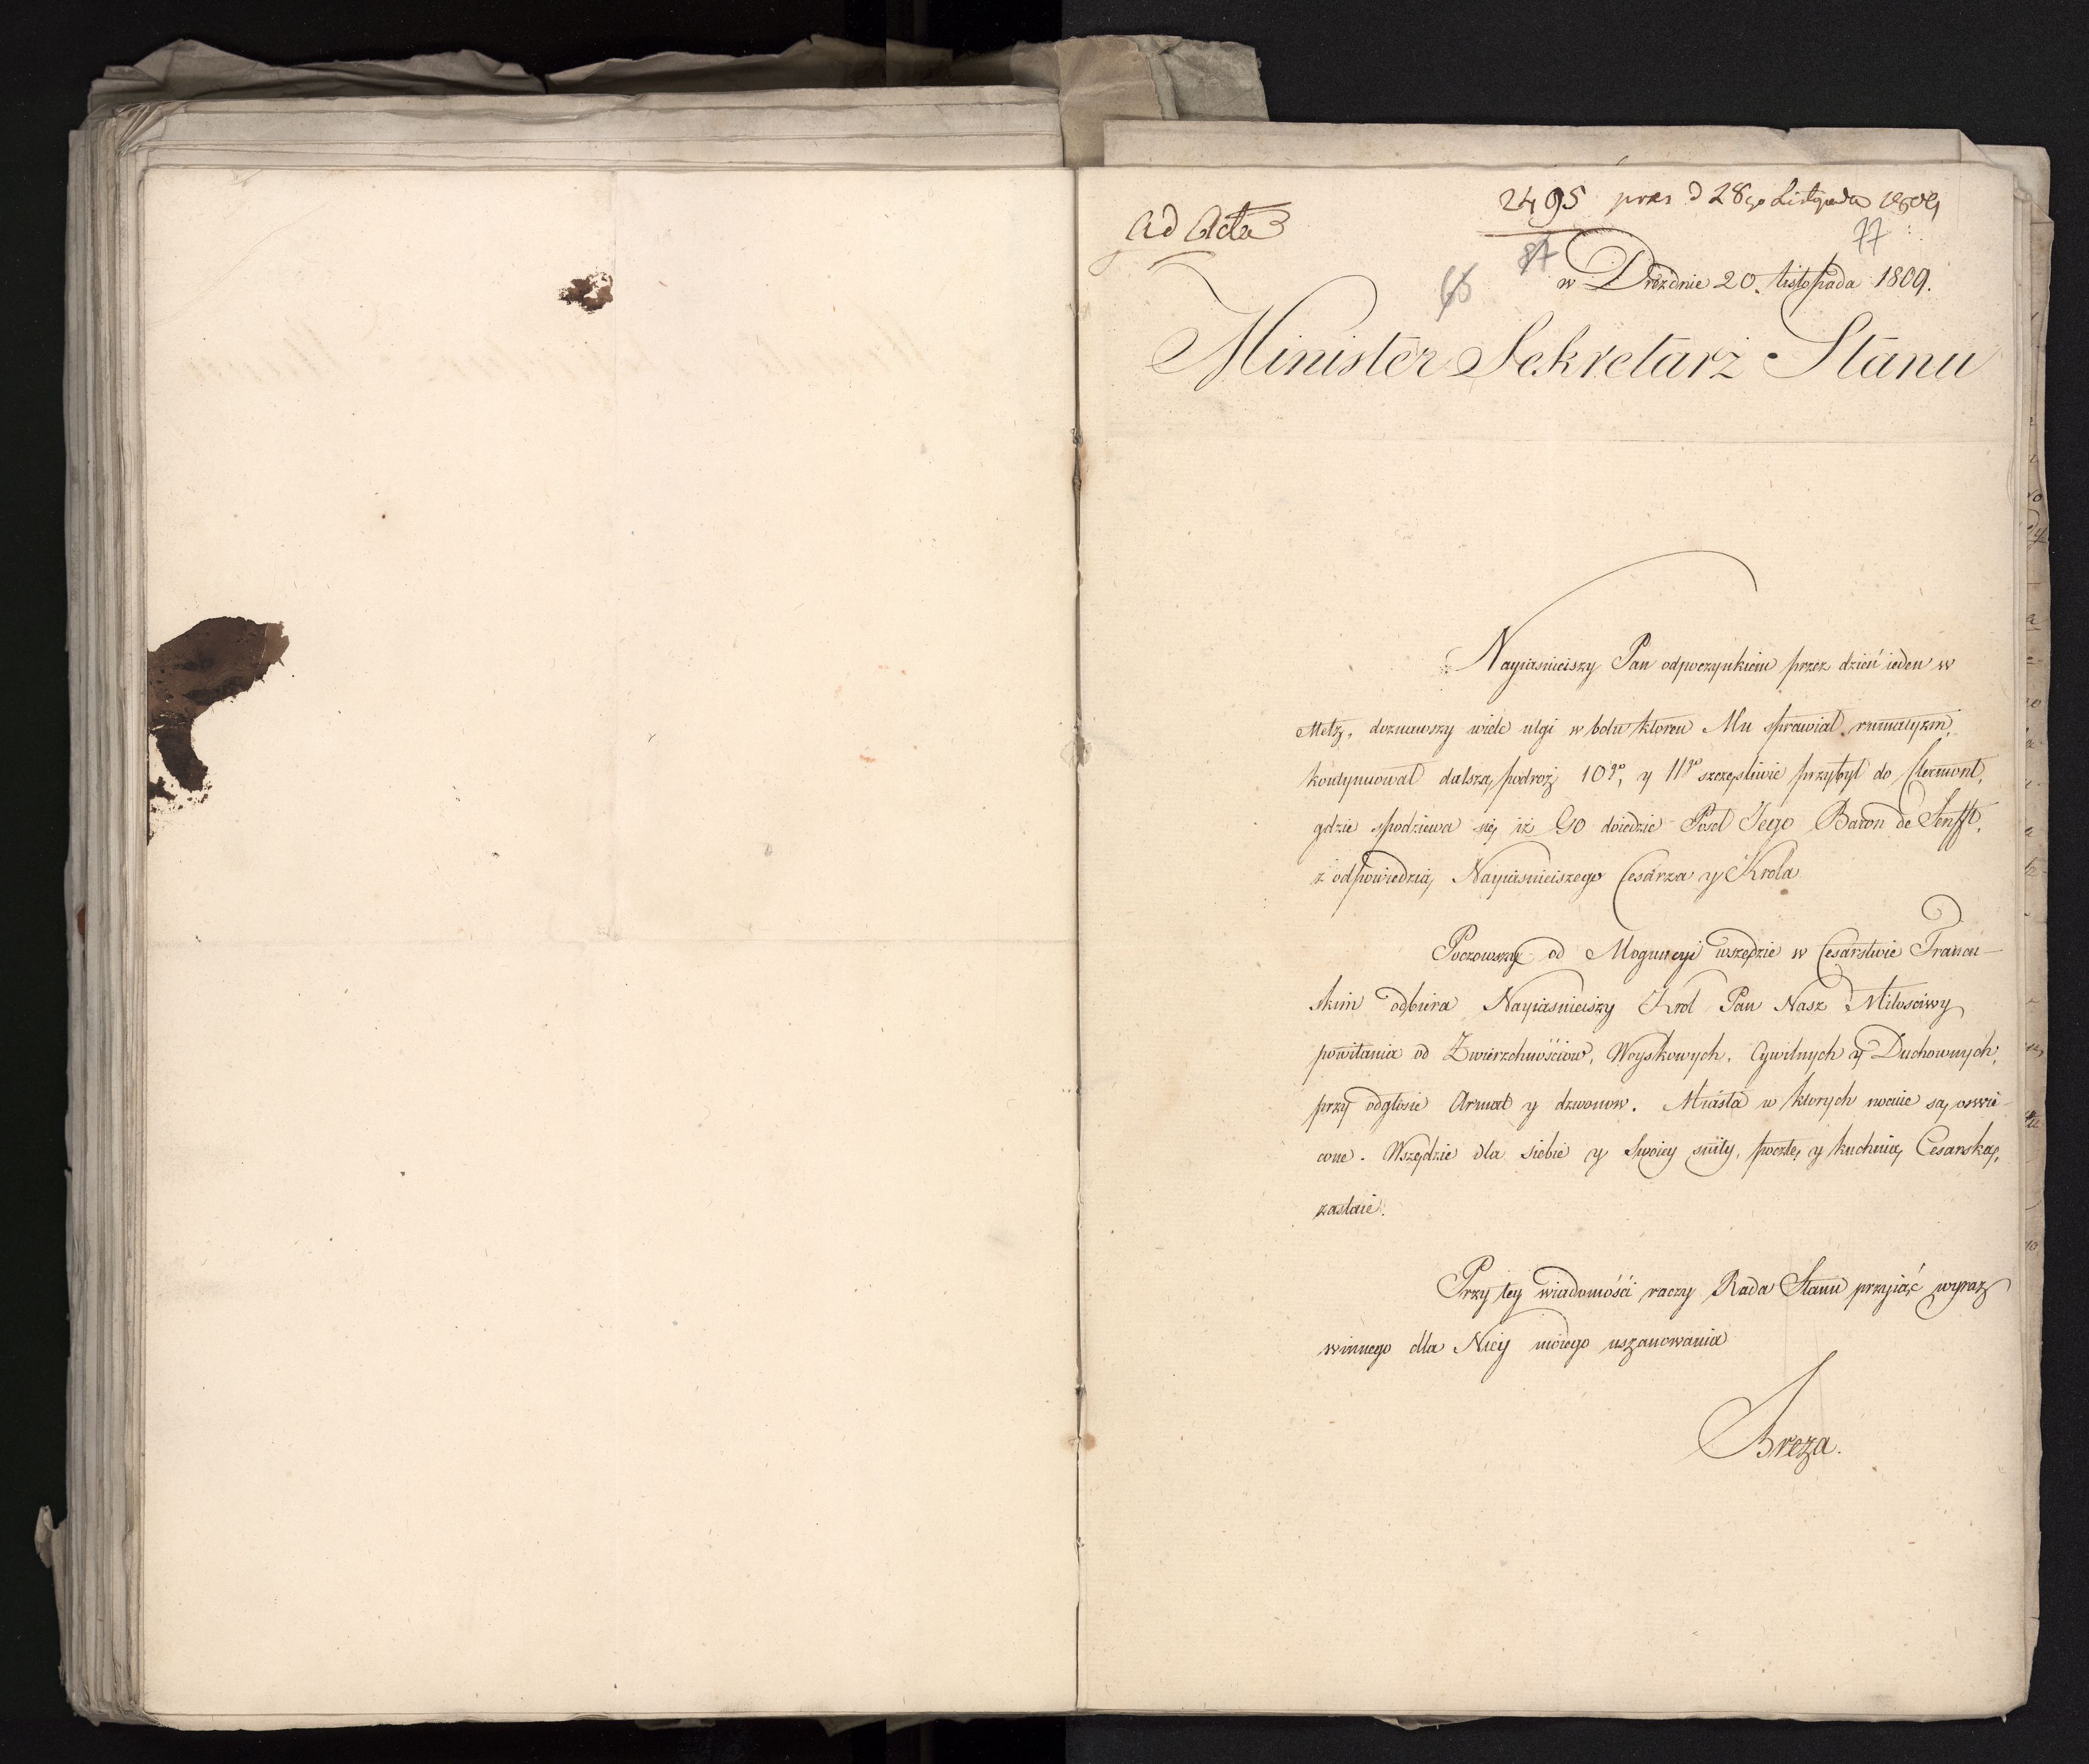 Ad Acta
2495 praes d 28go Listopada 1809
77
87
65
w Dreznie 20. listopada 1809.
Minister Sekretarz Stanu
Nayiasnieiszy Pan odpoczynkiem przez dzień ieden w
Metz, doznawszy wiele ulgi w bolu ktoren Mu sprawiał rumatyzm,
kontynuował dalszą podroż 10go, y 11go szczęsliwie przybył do Clermont,
gdzie spodziewa się iż Go doiedzie Poseł Jego Baron de Senfft,
z odpowiedzią Nayiasnieiszego Cesarza y Krola
Począwszy od Moguncyi wszędzie w Cesarstwie Francu-
skim odbiera Nayiasnieiszy Krol Pan Nasz Miłosciwy
powitania od Zwierzchnościow, Woyskowych, Cywilnych y Duchownych,
przy odgłosie Armat y dzwonow. Miasta w ktorych nocuie są oswie-
cone. Wszędzie dla siebie y Swoiey suity, pocztę y kuchnią Cesarską,
zastaie.
Przy tey wiadomośći raczy Rada Stanu przyiąć wyraz
winnego dla Niey moiego uszanowania
Breza.